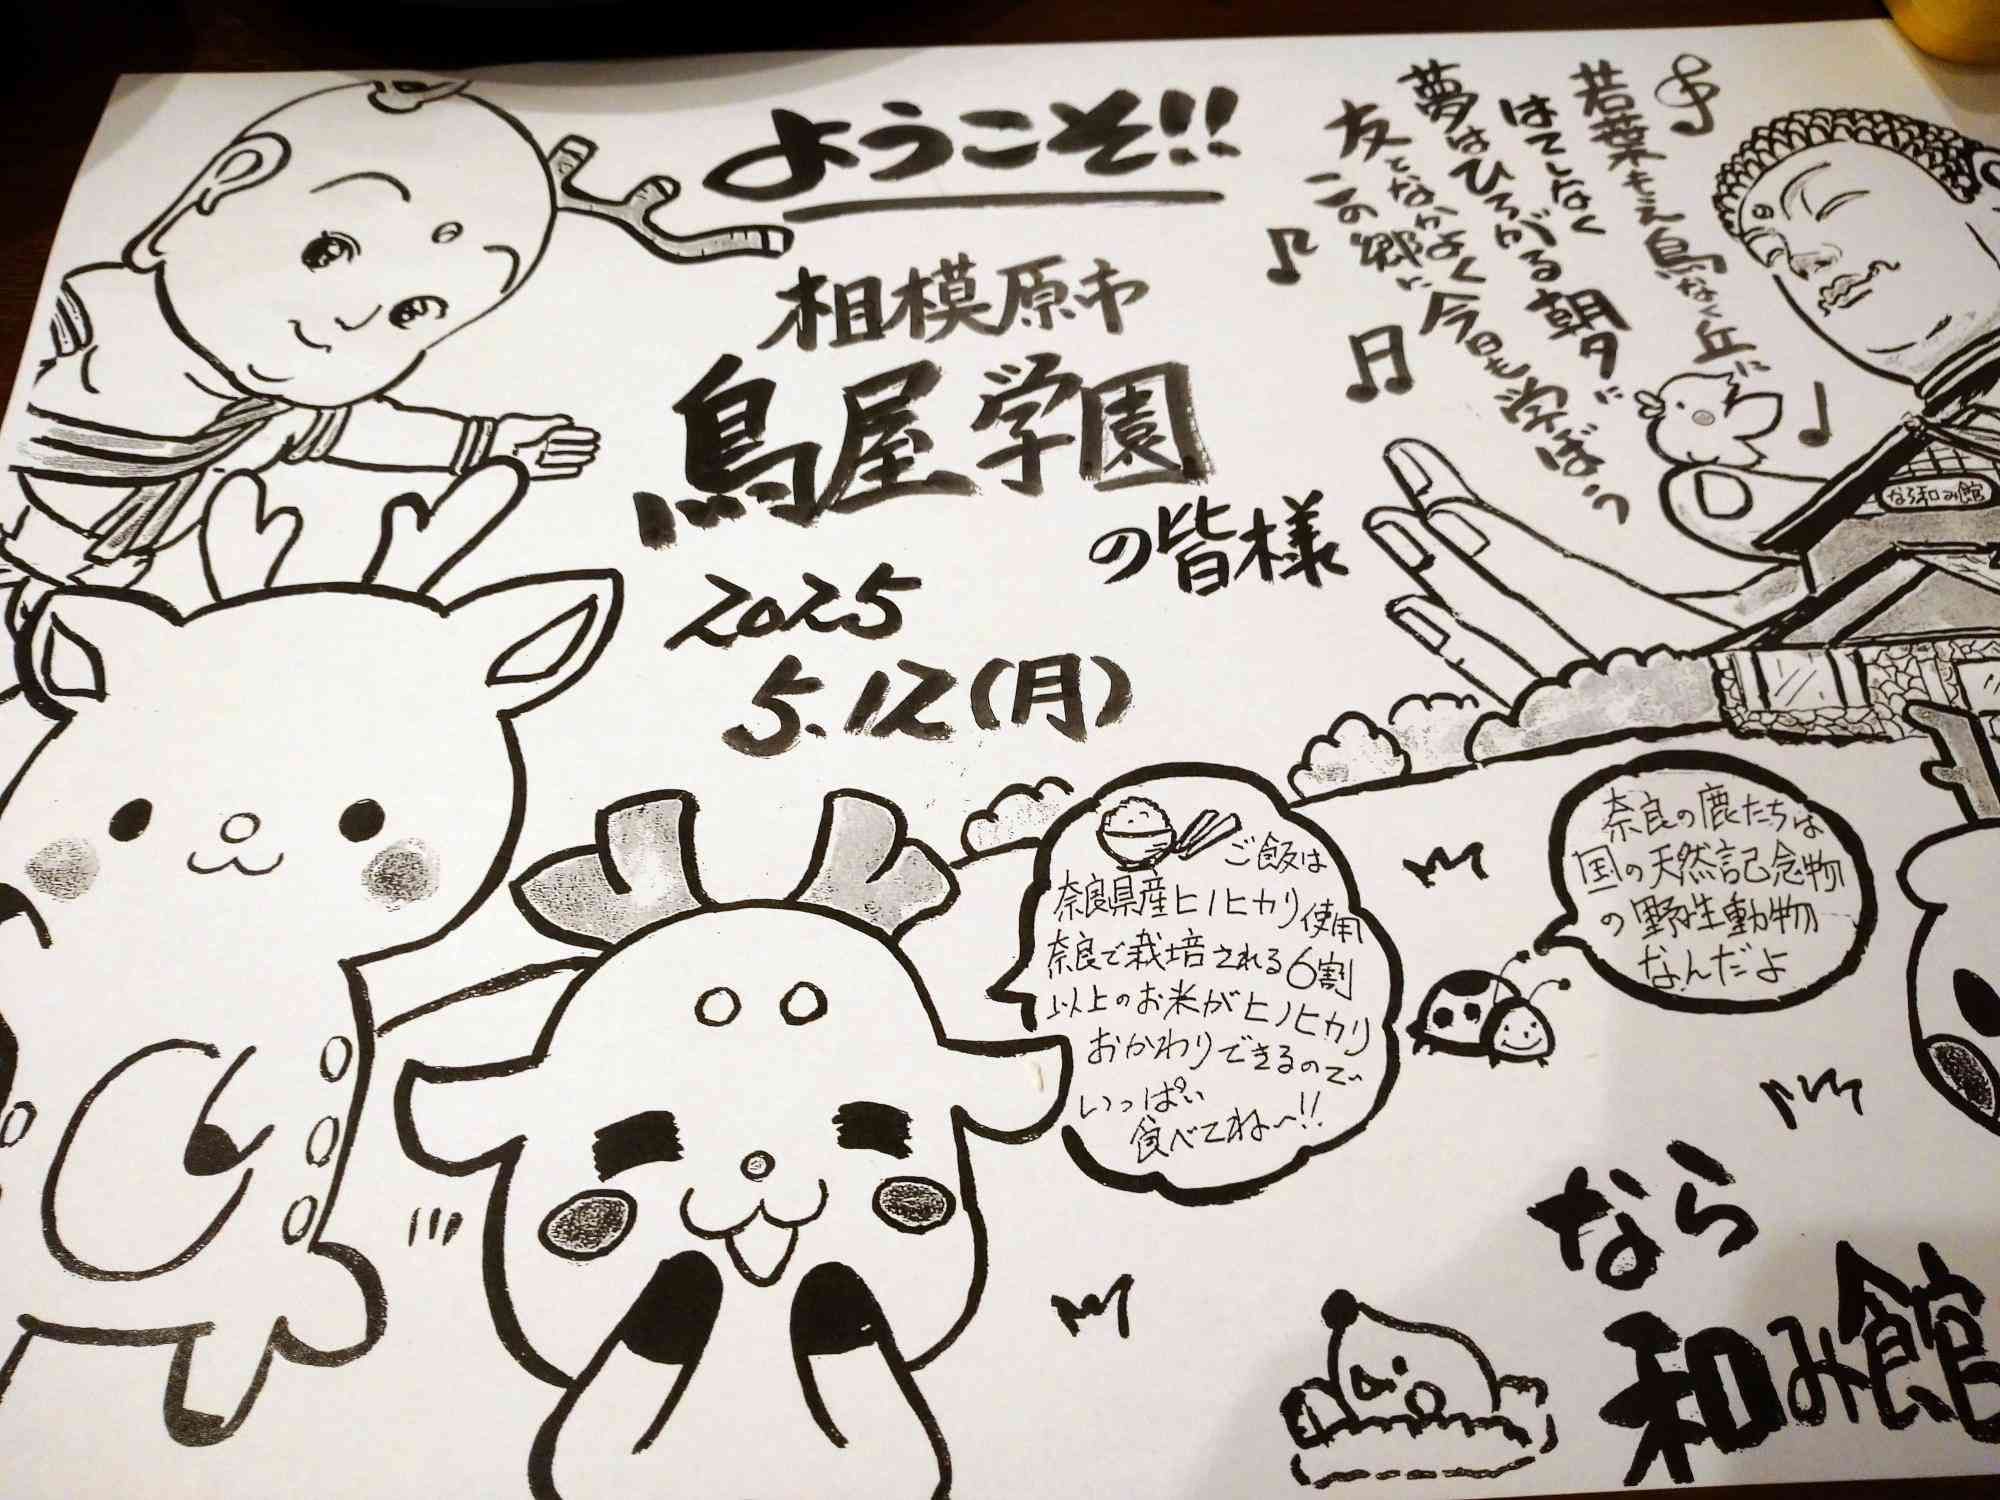 ようこそ!!
相模原市
鳥屋学園
の皆様
2025
5.12(月)
若葉もえ鳥なく丘に
はてしなく
夢はひろがる朝夕に
友となかよく今日も学ぼう
この郷に
なら和み館
ご飯は
奈良県産ヒノヒカリ使用
奈良で栽培される6割
以上のお米がヒノヒカリ
おかわりできるので
いっぱい
食べてね〜!!
奈良の鹿たちは
国の天然記念物
の野生動物
なんだよ
なら
和み館